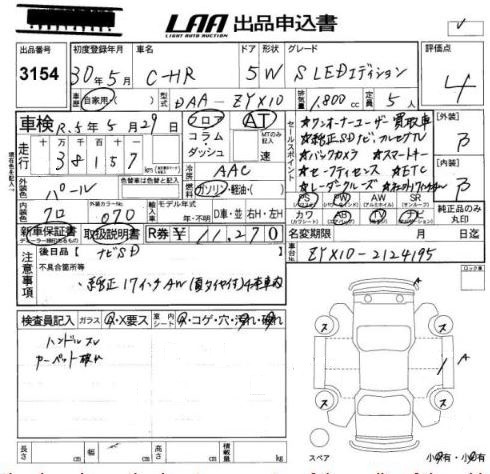 LAA 出品申込書
LIGHT AUTO AUCTION
出品番号 3154
初度登録年月 30年5月
車名 C-HR
ドア 形状 5W
グレード S LEDエディション
評価点 4
車歴 自家用( )
型式 DAA-ZYX10
排気量 1,800cc
定員 5人
車検 R.5年5月29日
シフト フロア コラム・ダッシュ AT MTのみ記入 速
走行 十万 万 千 百 十 一
38157 km
冷房 AAC
燃料 ガソリン・軽油( )
外装色 パール
色替車は色替と記入
内装色 クロ
外装カラーNo. 070
輸入車 モデル年式 年・不明
D車・並 右H・左H
新車保証書 取扱説明書
R券 ¥11,270
セールスポイント
★ワンオーナーユーザー買取車
★純正SDナビ、フルセグTV
★バックカメラ ★スマートキー
★セーフティセンス ★ETC
★レーダークルーズ
PS PW AW SR
カワ AB TV ナビ
純正品のみ丸印
【外装】 B
【内装】 B
名変期限 月 日迄
車台No. ZYX10-2124195
注意事項
後日品( ナビSD )
不具合箇所等
・純正17インチAW(夏タイヤ付)4本車内
検査員記入 ガラス X・X要ス
車内シート X・コゲ・穴・汚れ・破れ
ハンドルスレ
カーペット破れ
長さ cm 幅 cm 高さ cm 積載量 kg
ロック車
A
ス ス
A
ス ス
スペア
小有・小有